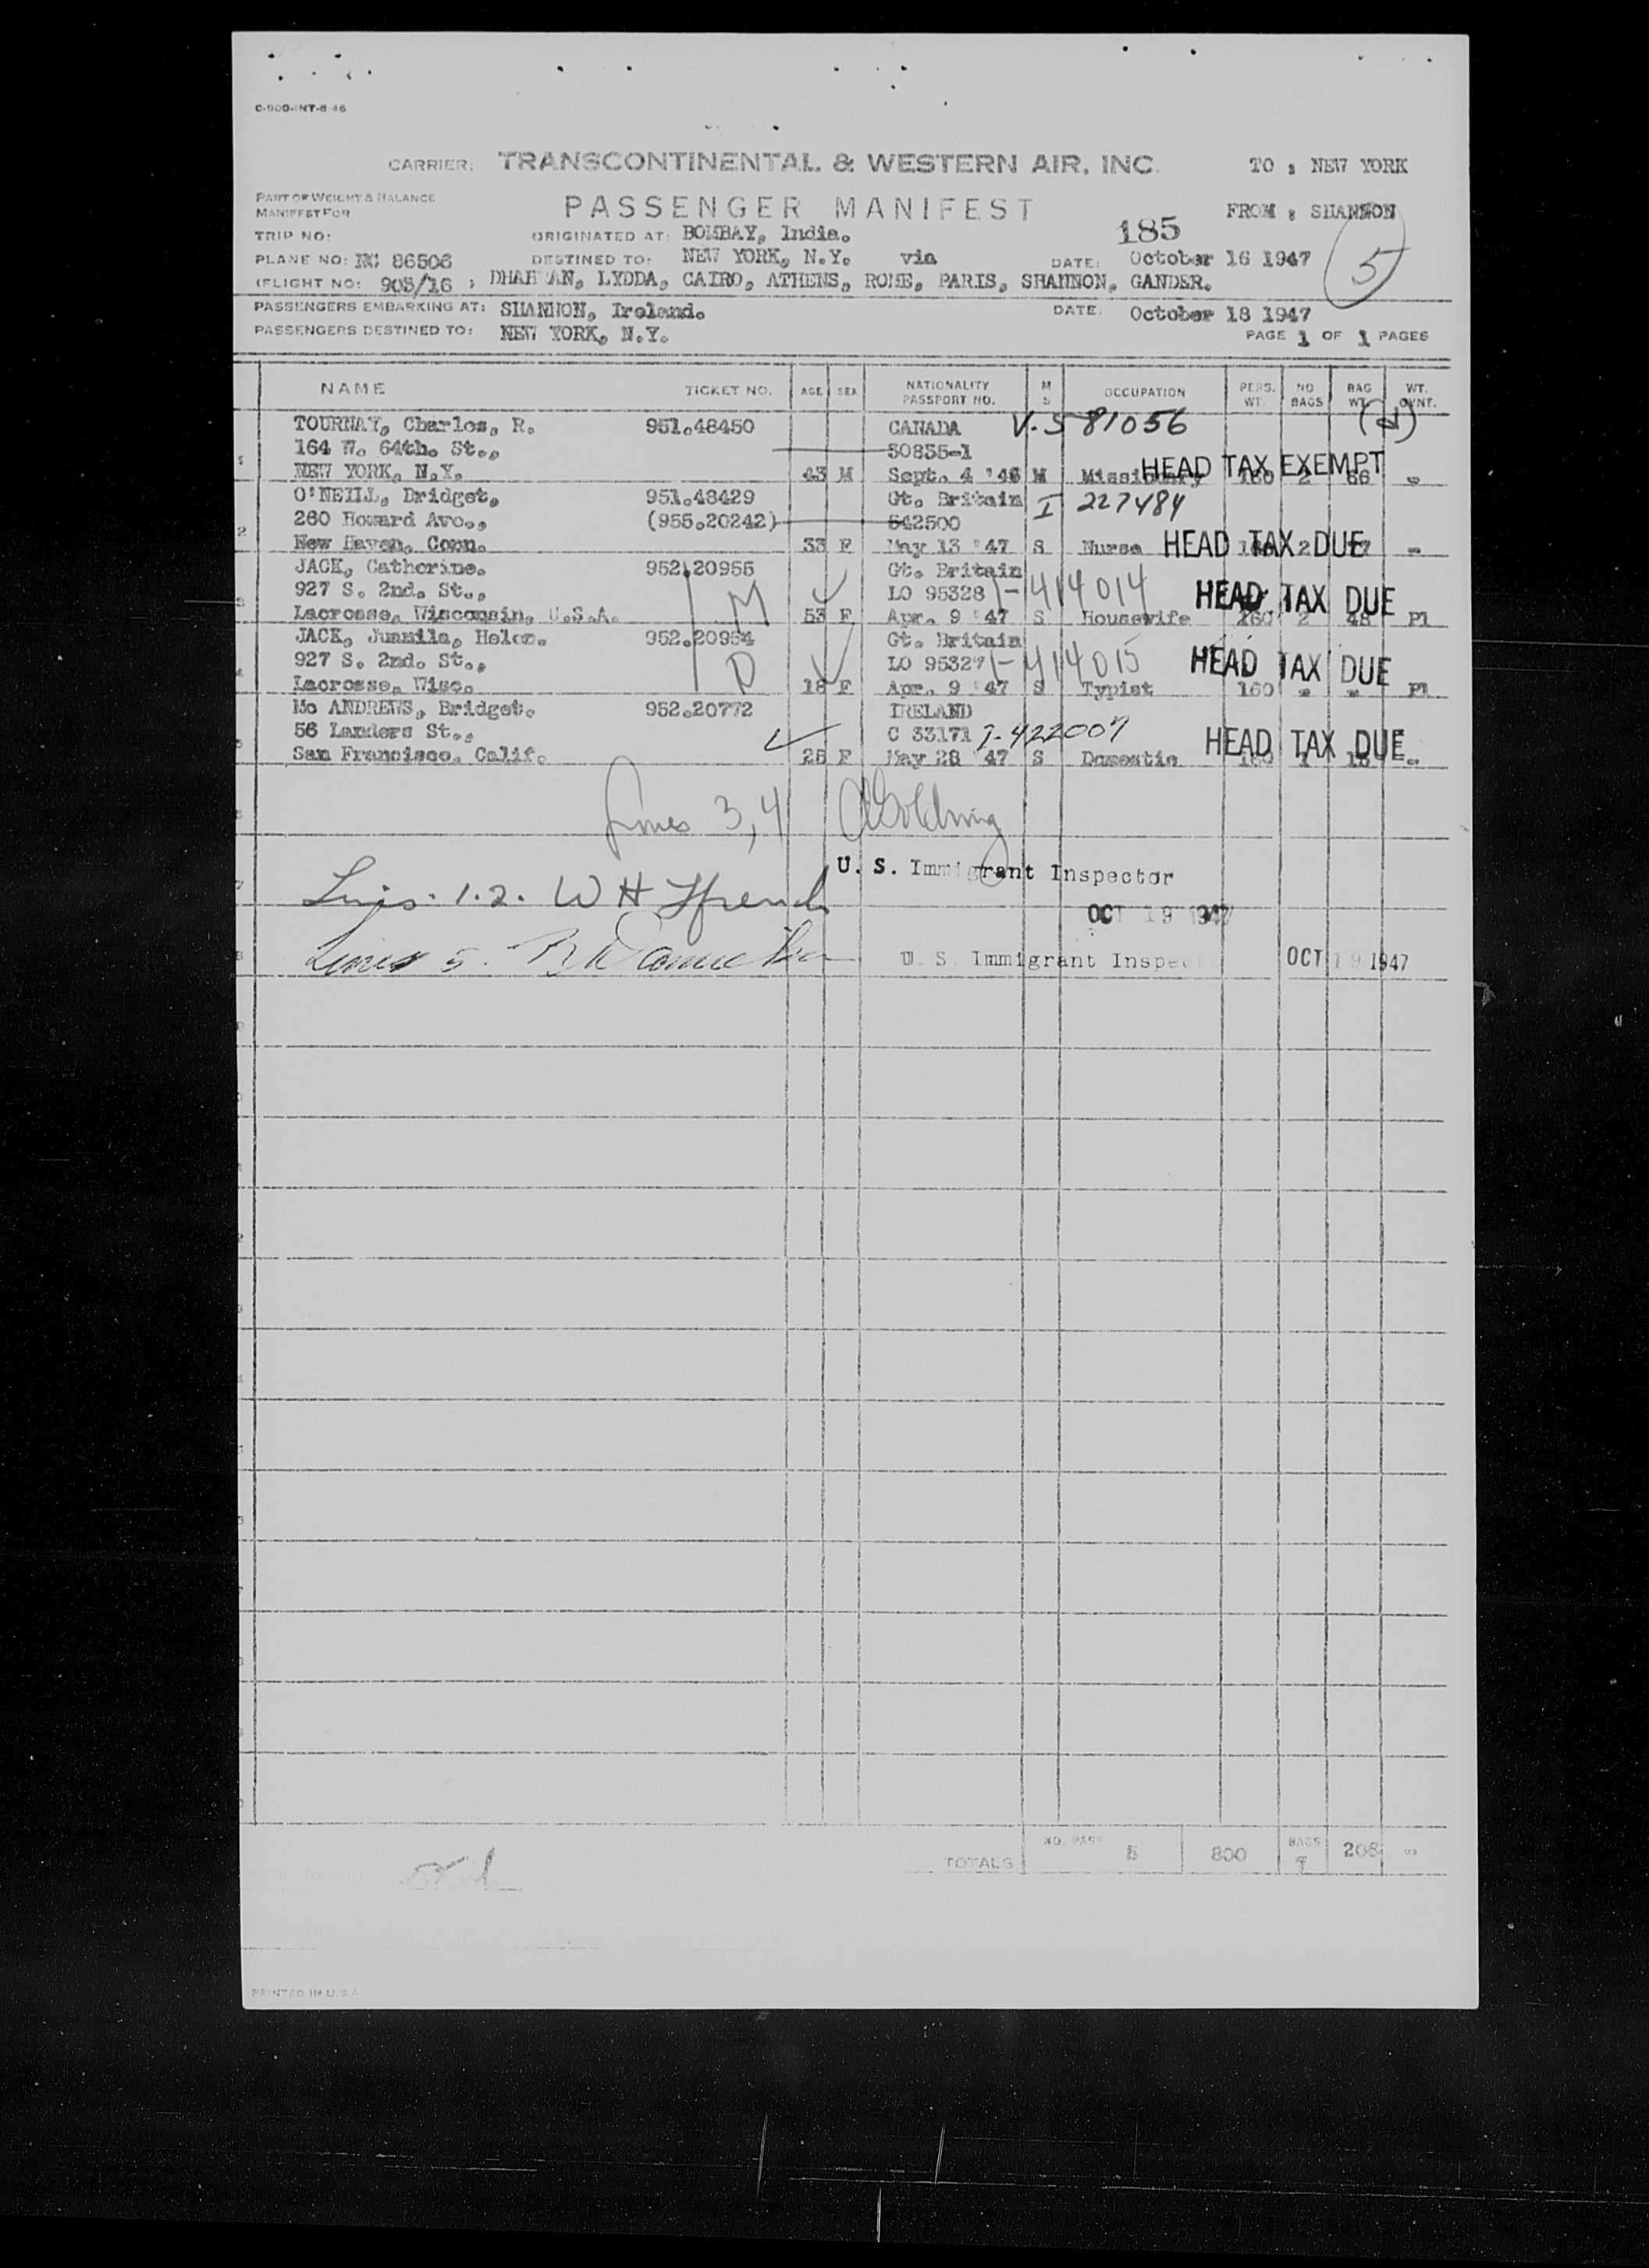 C-900-INT-6-46
CARRIER: TRANSCONTINENTAL & WESTERN AIR, INC. TO : NEW YORK
PART OF WEIGHT & BALANCE
MANIFEST FOR
PASSENGER MANIFEST
FROM : SHANNON
TRIP NO: ORIGINATED AT: BOMBAY, India. 185
PLANE NO: NC 86506 DESTINED TO: NEW YORK, N.Y. via DATE: October 16 1947 5
(FLIGHT NO: 903/16 ; DHAH AN, LYDDA, CAIRO, ATHENS, ROME, PARIS, SHANNON, GANDER.
PASSENGERS EMBARKING AT: SHANNON, Ireland. DATE: October 18 1947
PASSENGERS DESTINED TO: NEW YORK, N.Y. PAGE 1 OF 1 PAGES
NAME TICKET NO. AGE SEX NATIONALITY PASSPORT NO. M S OCCUPATION PERS. WT. NO BAGS BAG WT. WT. OVNT.
TOURNAY, Charles, R. 951.48450 CANADA V-581056 (d)
164 W. 64th. St., 50835-1
1 NEW YORK, N.Y. 43 M Sept. 4 '46 M Missionary HEAD TAX EXEMPT 160 2 66 -
O'NEILL, Bridget, 951.48429 Gt. Britain I 227484
260 Howard Ave., (955.20242) 642500
2 New Haven, Conn. 33 F May 13 '47 S Nurse HEAD TAX DUE 2 -
JACK, Catherine. 952.20955 Gt. Britain
927 S. 2nd. St., M LO 95328 I-414014 HEAD TAX DUE
3 Lacrosse, Wisconsin, U.S.A. 53 F Apr. 9 '47 S Housewife 160 2 48 Pl
JACK, Juanila, Helen. 952.20954 Gt. Britain
927 S. 2nd. St., D LO 95327 I-414015 HEAD TAX DUE
4 Lacrosse, Wisc. 18 F Apr. 9 '47 S Typist 160 - - Pl
Mc ANDREWS, Bridget. 952.20772 IRELAND
56 Landers St., C 33171 I-422007 HEAD TAX DUE
5 San Francisco, Calif. 28 F May 28 '47 S Domestic 160 1 -
Lines 3,4
U. S. Immigrant Inspector
Lines 1.2. W H
OCT 19 1947
Lines 5.
U. S. Immigrant Inspec OCT 19 1947
TOTALS NO. PASS 5 800 BAGS 7 208 -
PRINTED IN U.S.A.